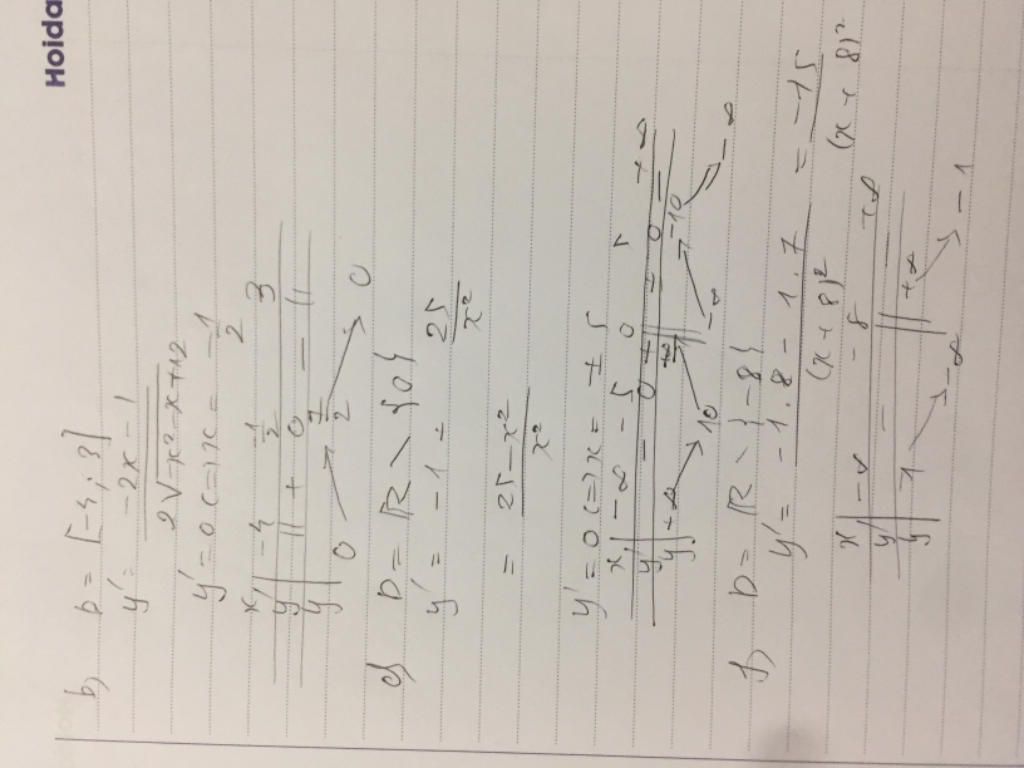 Hoida
b) D = [-4; 3]
y' = \frac{-2x-1}{2\sqrt{-x^2-x+12}}
y' = 0 <=> x = -\frac{1}{2}
x -4 -\frac{1}{2} 3
y' || + 0 - ||
y 0 \frac{7}{2} 0
D = R \ {0}
y' = -1 + \frac{25}{x^2}
= \frac{25-x^2}{x^2}
y' = 0 <=> x = ± 5
x -∞ -5 0 5 +∞
y' - 0 + || + 0 -
y +∞ 10 +∞ || -∞ -10 -∞
f) D = R \ {-8}
y' = \frac{-1.8-1.7}{(x+8)^2} = \frac{-15}{(x+8)^2}
x -∞ -8 +∞
y' - || -
y -∞ || +∞ -1